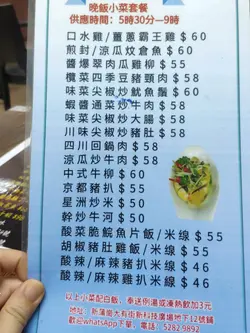 晚飯小菜套餐
供應時間：5時30分—9時
口水雞/薑蔥霸王雞 $60
煎封/涼瓜炆倉魚 $60
醬爆翠肉瓜雞柳 $55
欖菜四季豆豬頸肉 $58
味菜尖椒炒魷魚鬚 $60
蝦醬通菜炒牛肉 $58
味菜尖椒炒大腸 $58
川味尖椒炒豬肚 $58
四川回鍋肉 $58
涼瓜炒牛肉 $58
中式牛柳 $60
京都豬扒 $55
星洲炒米 $50
幹炒牛河 $50
酸菜脆鯇魚片飯/米線 $55
胡椒豬肚雞飯/米線 $55
酸辣/麻辣豬扒米線 $46
酸辣/麻辣雞扒米線 $46
以上小菜配白飯，奉送例湯或凍熱飲加3元
地址：新蒲崗大有街新科技廣場地下12號舖
歡迎whatsApp下單，電話：5282 9892